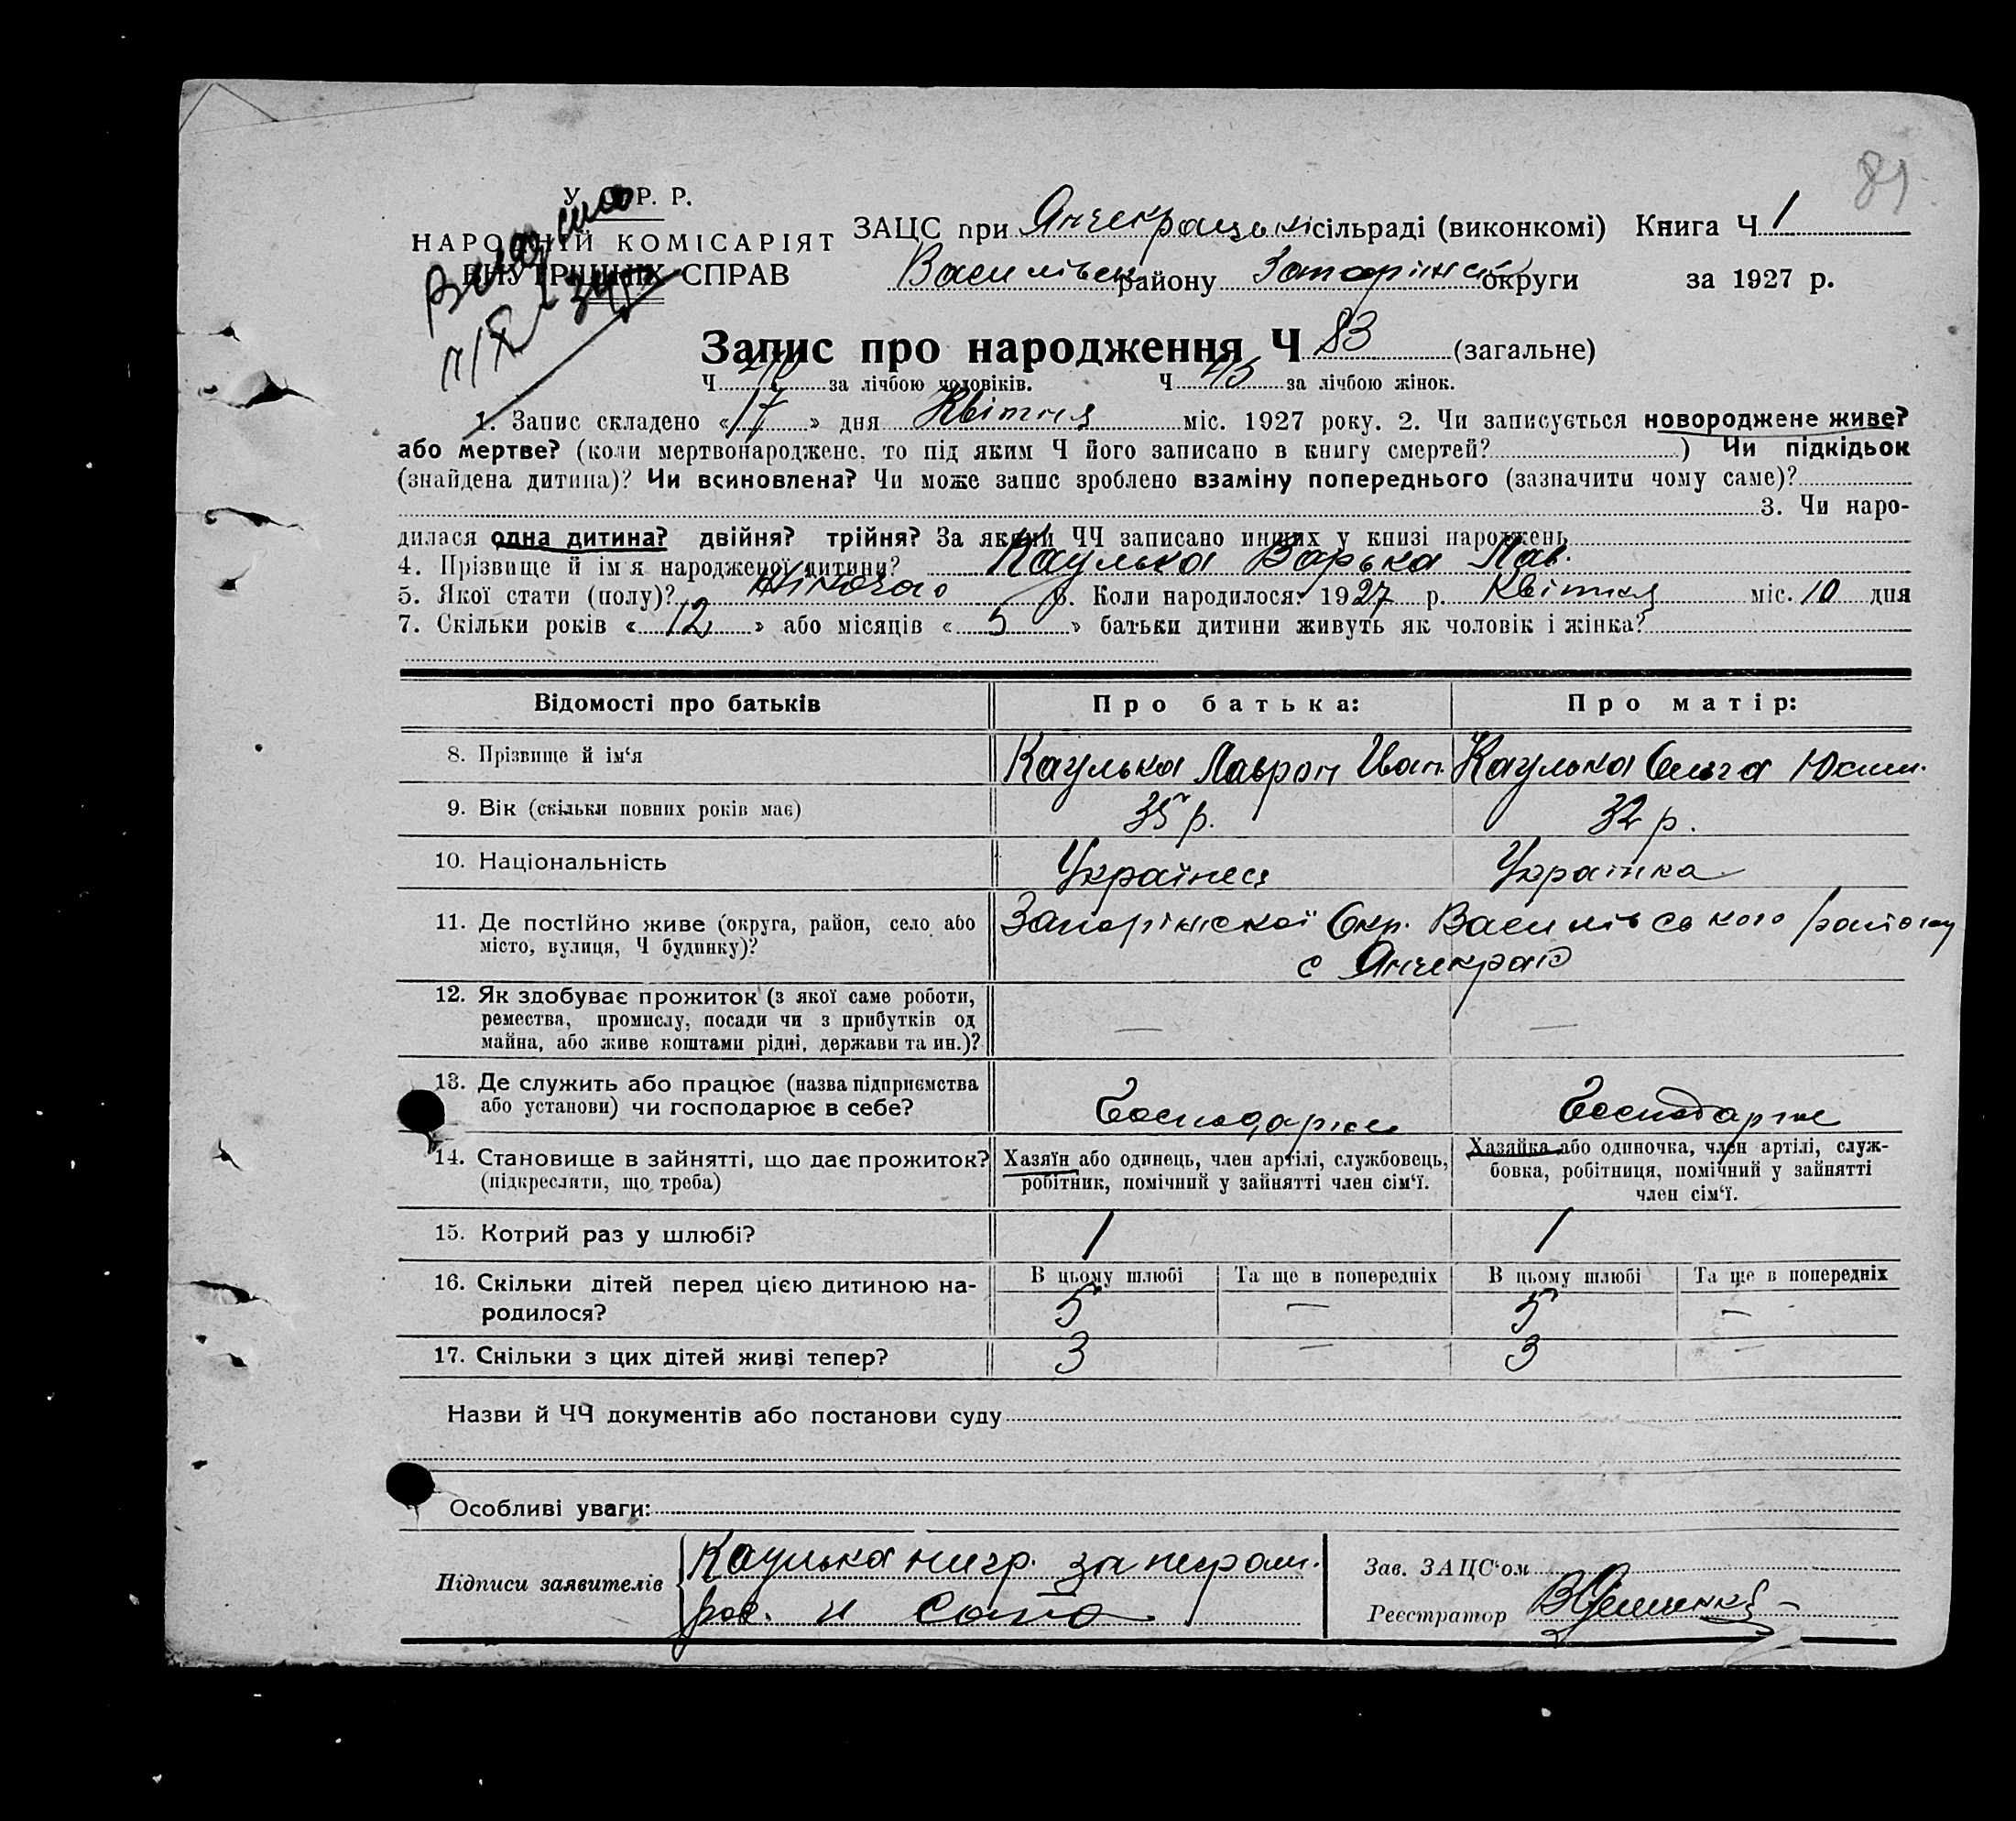 81
У. С. Р. Р.
НАРОДНІЙ КОМІСАРІЯТ
ВНУТРІШНІХ СПРАВ
ЗАЦС при Янчекрацькій сільраді (виконкомі) Книга Ч 1
Василівськ району Запоріжськ округи за 1927 р.
Запис про народження Ч 83 (загальне)
Ч за лічбою чоловіків. Ч 45 за лічбою жінок.
1. Запис складено «17» дня Квітня міс. 1927 року. 2. Чи записується новороджене живе?
або мертве? (коли мертвонароджене, то під яким Ч його записано в книгу смертей? ) Чи підкідьок
(знайдена дитина)? Чи всиновлена? Чи може запис зроблено взаміну попереднього (зазначити чому саме)?
3. Чи наро-
дилася одна дитина? двійня? трійня? За якими ЧЧ записано инших у книзі народжень
4. Прізвище й ім'я народженої дитини? Каулька Варька Лав.
5. Якої стати (полу)? Жіночого 6. Коли народилося? 1927 р. Квітня міс. 10 дня
7. Скільки років «12» або місяців «5» батьки дитини живуть як чоловік і жінка?
Відомості про батьків Про батька: Про матір:
8. Прізвище й ім'я Каулька Лаврон Иван. Каулька Ольга Юхим.
9. Вік (скільки повних років має) 35 р. 32 р.
10. Національність Українец Українка
11. Де постійно живе (округа, район, село або Запоріжської Окр. Василівського району
місто, вулиця, Ч будинку)? с Янчекрак
12. Як здобуває прожиток (з якої саме роботи,
ремества, промислу, посади чи з прибутків од — —
майна, або живе коштами рідні, держави та ин.)?
13. Де служить або працює (назва підприємства
або установи) чи господарює в себе? Господарює Господарює
14. Становище в зайнятті, що дає прожиток? Хазяїн або одинець, член артілі, службовець, Хазяйка або одиночка, член артілі, служ-
(підкреслити, що треба) робітник, помічний у зайнятті член сім'ї. бовка, робітниця, помічний у зайнятті
член сім'ї.
15. Котрий раз у шлюбі? 1 1
16. Скільки дітей перед цією дитиною на- В цьому шлюбі Та ще в попередніх В цьому шлюбі Та ще в попередніх
родилося? 5 — 5 —
17. Скільки з цих дітей живі тепер? 3 — 3 —
Назви й ЧЧ документів або постанови суду
Особливі уваги:
Підписи заявителів Каулька нигр. за неграм.
рос. и
Зав. ЗАЦС'ом
Реєстратор